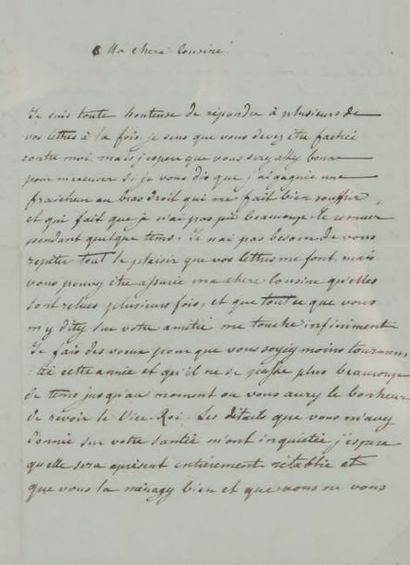 Ma chere Cousine
Je suis toute honteuse de répondre à plusieurs de
vos lettres à la fois. je sens que vous devez être fachée
contre moi mais j'espere que vous serez assez bonne
pour m'excuser si je vous dis que j'ai gagnée une
fraicheur au bras droit qui me fait bien souffrir,
et qui fait que je n'ai pas pu beaucoup le remuer
pendant quelque tems. Je n'ai pas besoin de vous
repeter tout le plaisir que vos lettres me font mais
vous pouvez être assurée ma chere Cousine qu'elles
sont relues plusieurs fois, et que tout ce que vous
m'y dites sur votre amitié me touche infiniment
Je fais des voeux pour que vous soyiez moins tourmen
tée cette année et qu'il ne se passe plus beaucoup
de tems jusqu'au moment ou vous aurez le bonheur
de revoir le Vice-Roi. Les détails que vous m'avez
donnés sur votre santée m'ont inquietée j'espere
quelle sera apresent entièrement rétablie et
que vous la menagez bien et que vous ne vous